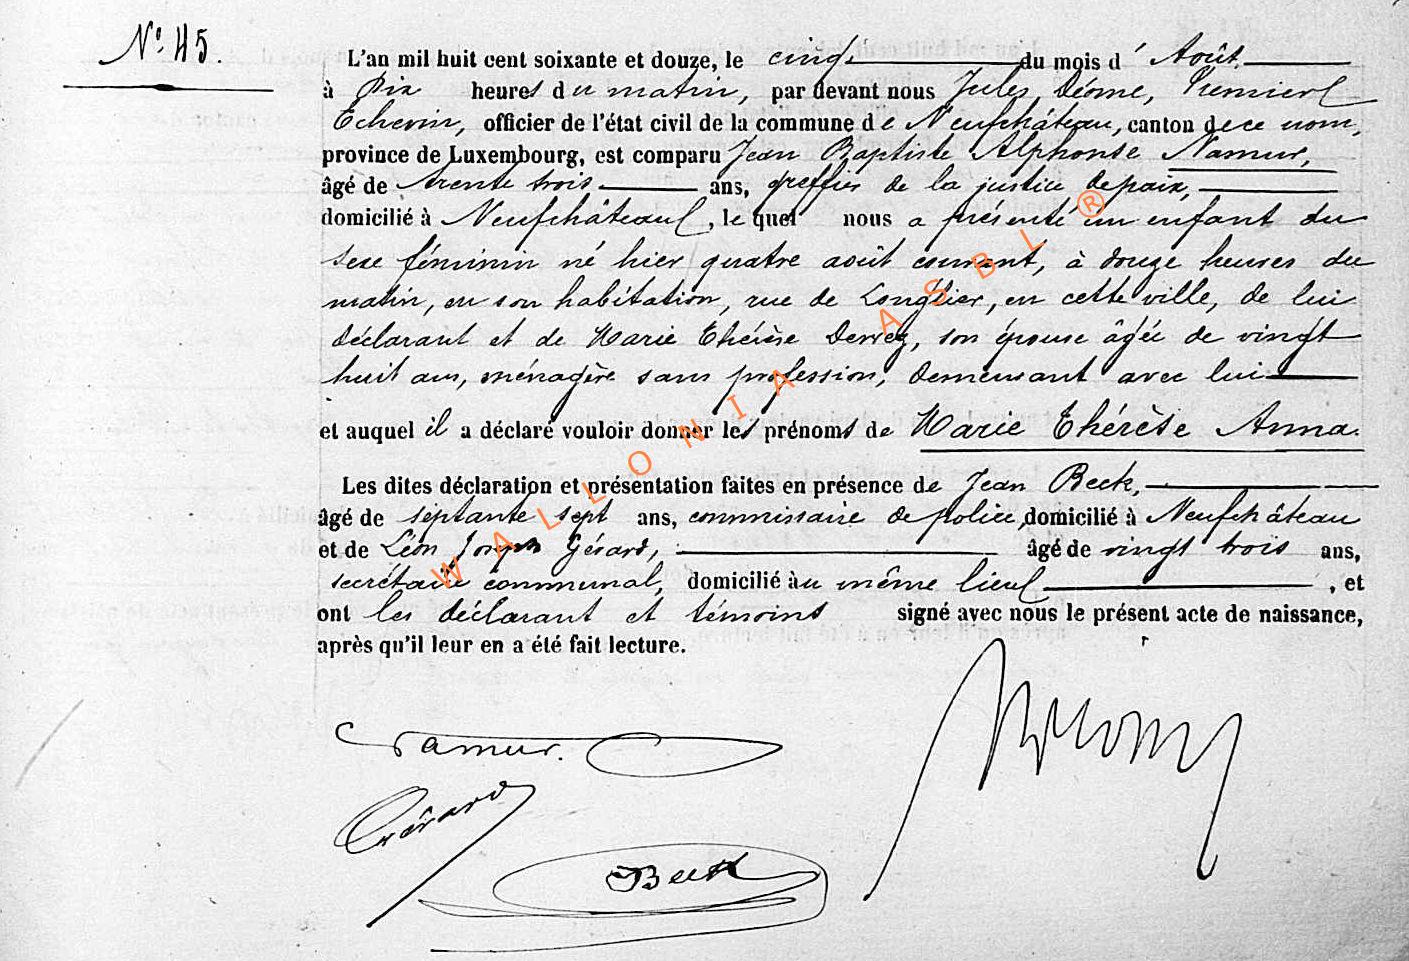 N° 45.
L'an mil huit cent soixante et douze, le cinq du mois d' Août
à Dix heures du matin, par devant nous Jules Déome, Premier
Echevin, officier de l'état civil de la commune de Neufchâteau, canton de ce nom,
province de Luxembourg, est comparu Jean Baptiste Alphonse Namur,
âgé de trente trois ans, greffier de la justice de paix,
domicilié à Neufchâteau, le quel nous a présenté un enfant du
sexe féminin né hier quatre août courant, à douze heures du
matin, en son habitation, rue de Longlier, en cette ville, de lui
déclarant et de Marie Thérèse Derwez, son épouse âgée de vingt
huit ans, ménagère sans profession, demeurant avec lui
et auquel il a déclaré vouloir donner les prénoms de Marie Thérèse Anna.
Les dites déclaration et présentation faites en présence de Jean Beck,
âgé de septante sept ans, commissaire de police, domicilié à Neufchâteau
et de Léon Joseph Gérard, âgé de vingt trois ans,
secrétaire communal, domicilié au même lieu, et
ont les déclarant et témoins signé avec nous le présent acte de naissance,
après qu'il leur en a été fait lecture.
Namur.
Gérard
Beck
WALLONIA ASBL ®